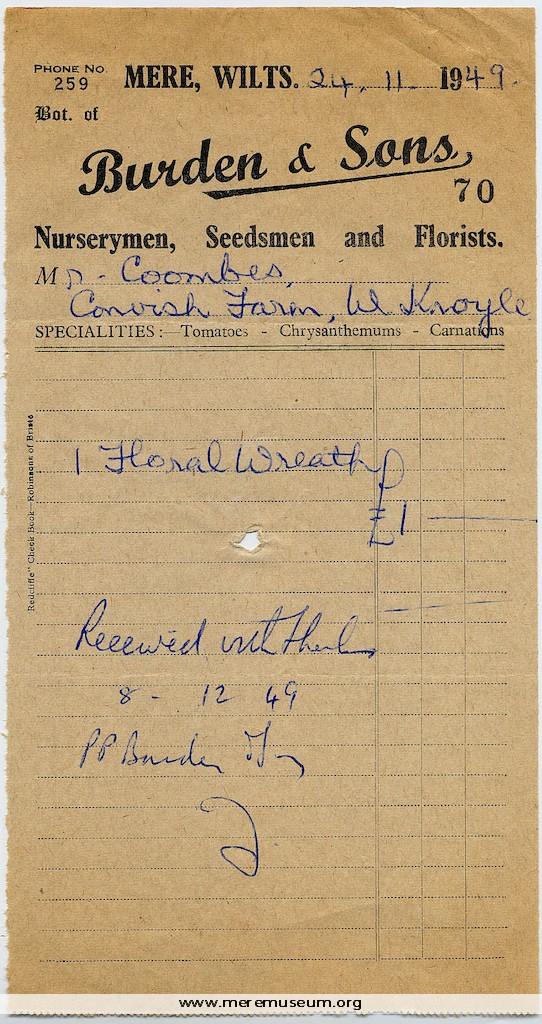 PHONE No.
259
MERE, WILTS. 24. 11. 1949.
Bot. of
Burden & Sons,
70
Nurserymen, Seedsmen and Florists.
Mr - Coombes,
Conrish Farm, W Knoyle
SPECIALITIES: Tomatoes - Chrysanthemums - Carnations
Redcliffe" Check Book—Robinsons of Bristo
1 Floral Wreath
£1 —
Received with Thanks
8 - 12 49
PP Burden
www.meremuseum.org